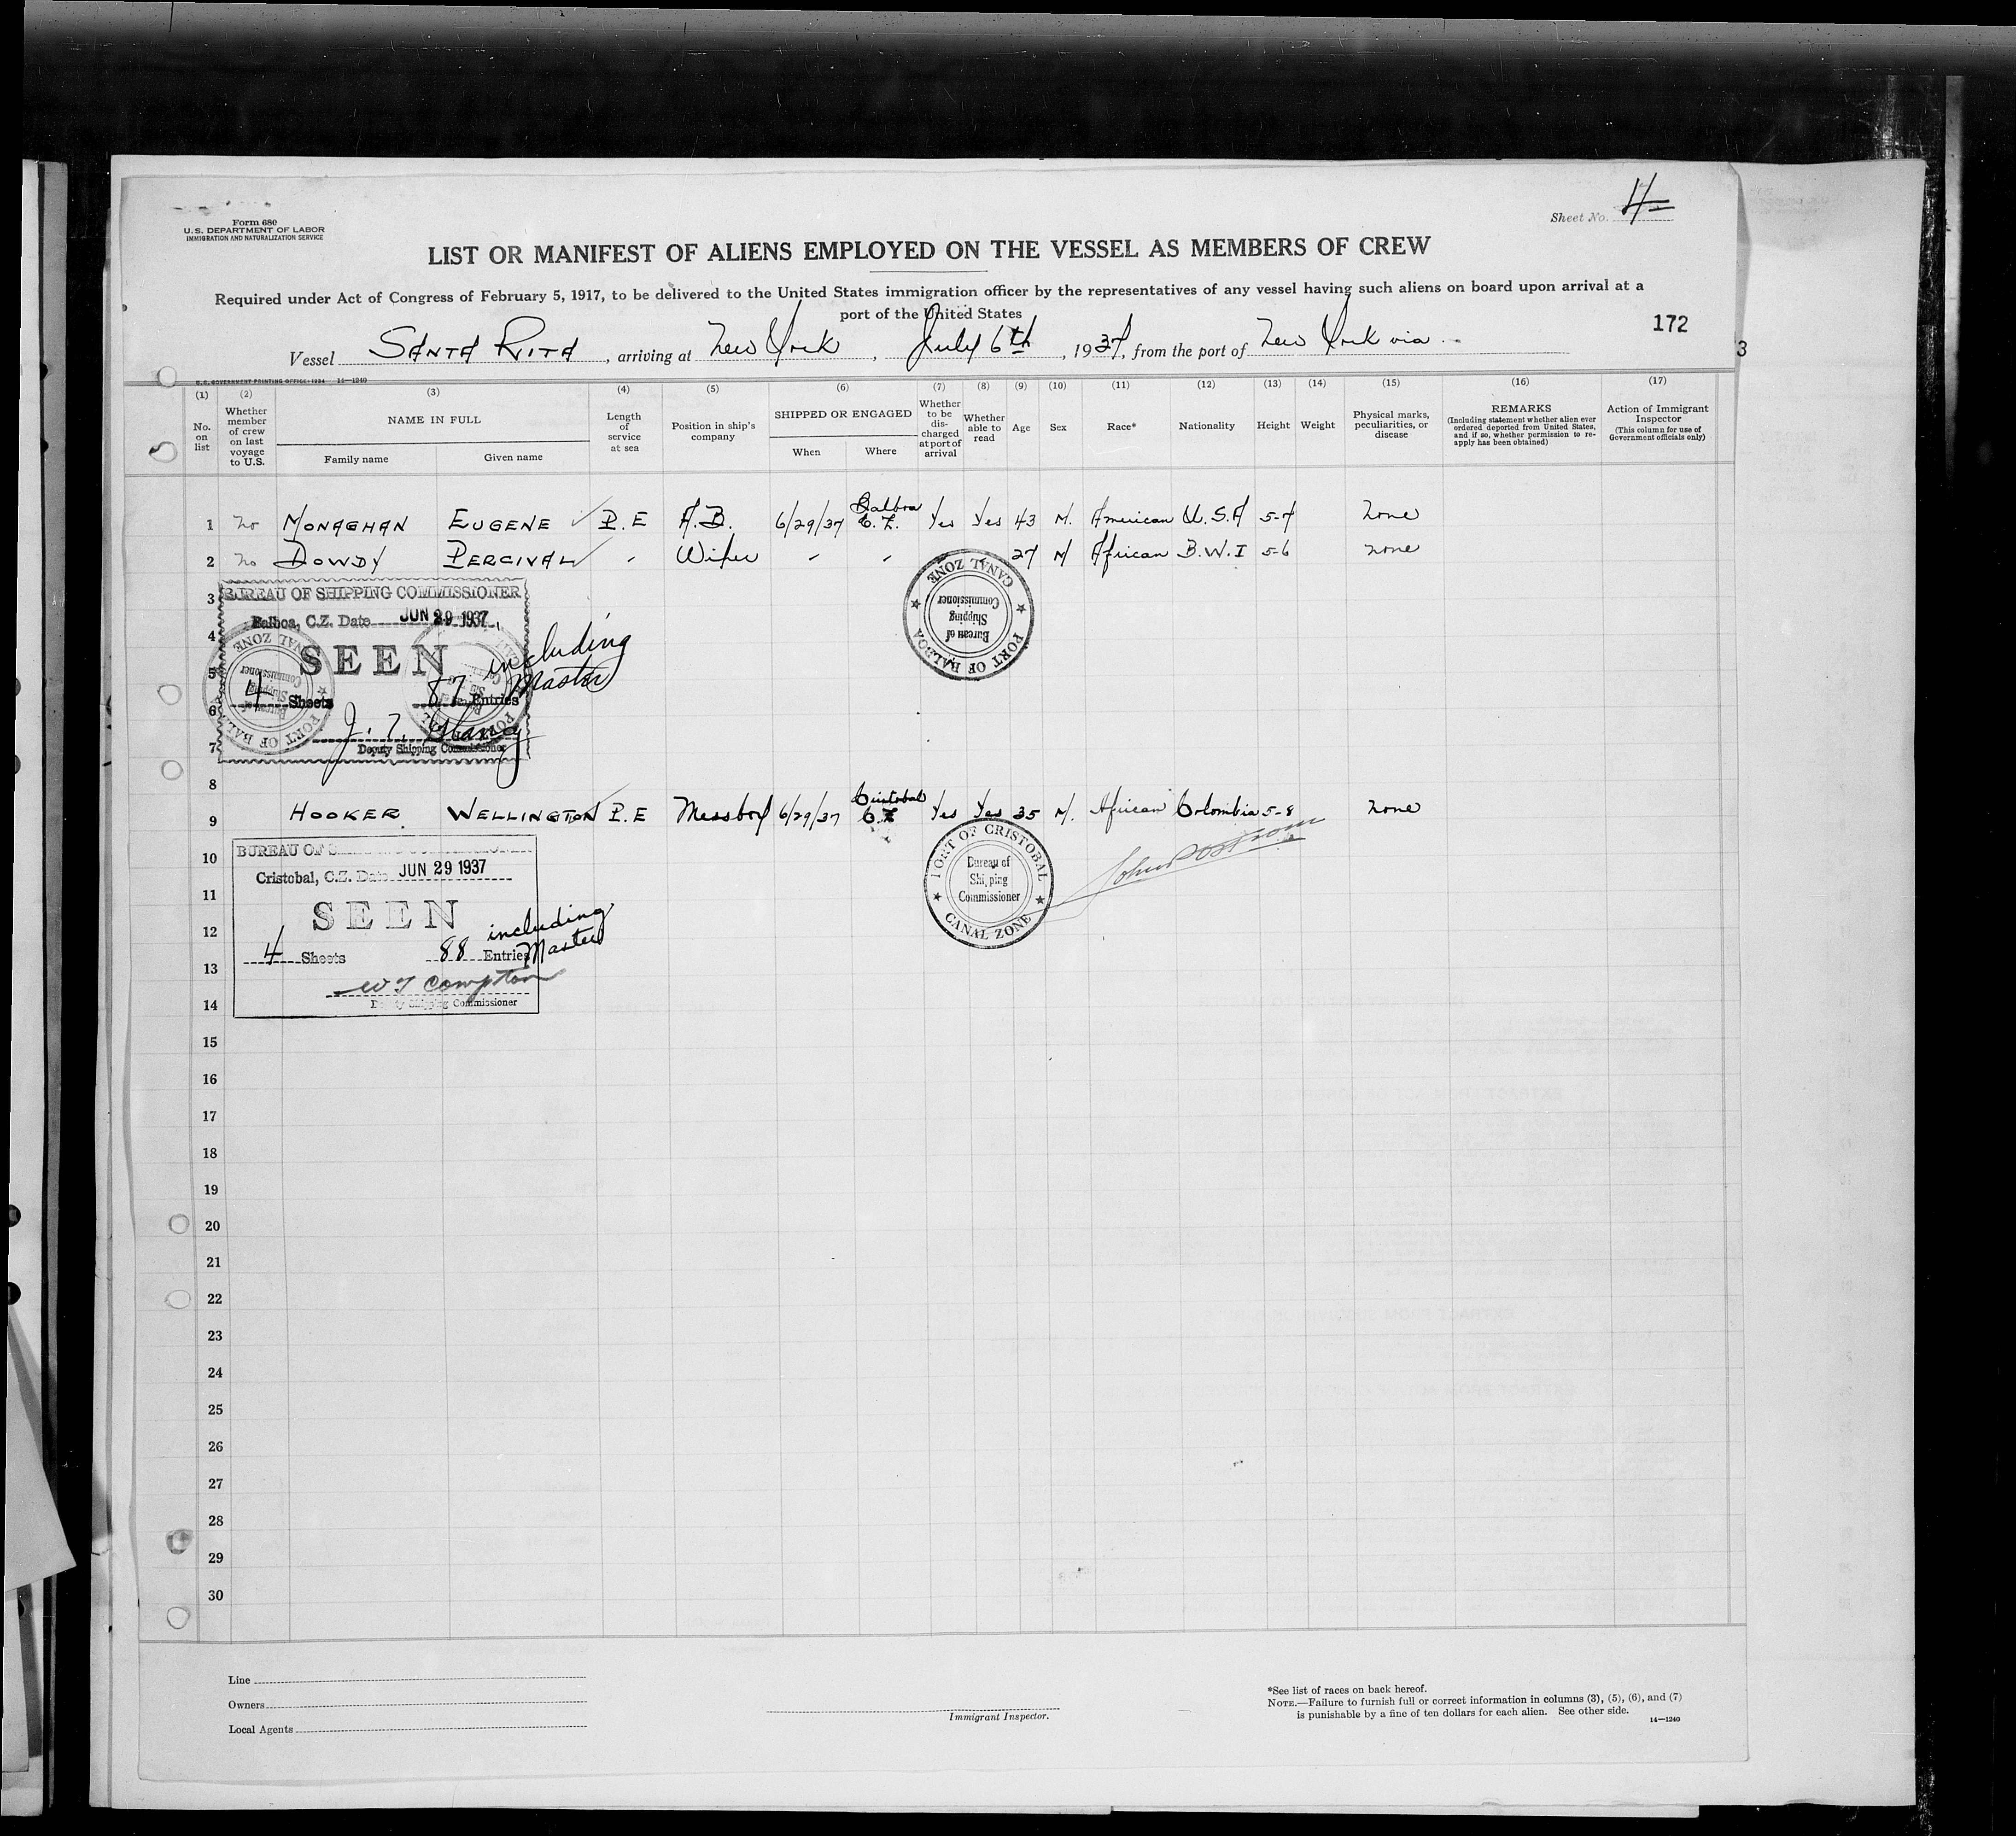 Form 680
U.S. DEPARTMENT OF LABOR
IMMIGRATION AND NATURALIZATION SERVICE
Sheet No. 4
LIST OR MANIFEST OF ALIENS EMPLOYED ON THE VESSEL AS MEMBERS OF CREW
Required under Act of Congress of February 5, 1917, to be delivered to the United States immigration officer by the representatives of any vessel having such aliens on board upon arrival at a
port of the United States
172
Vessel SANTA RITA, arriving at New York, July 6th, 1937, from the port of New York via
3
U.S. GOVERNMENT PRINTING OFFICE: 1934 14—1240
(1) (2) (3) (4) (5) (6) (7) (8) (9) (10) (11) (12) (13) (14) (15) (16) (17)
No. on list
Whether member of crew on last voyage to U.S.
NAME IN FULL
Family name Given name
Length of service at sea
Position in ship's company
SHIPPED OR ENGAGED
When Where
Whether to be discharged at port of arrival
Whether able to read
Age
Sex
Race*
Nationality
Height
Weight
Physical marks, peculiarities, or disease
REMARKS
(Including statement whether alien ever ordered deported from United States, and if so, whether permission to reapply has been obtained)
Action of Immigrant Inspector
(This column for use of Government officials only)
1 No MONAGHAN EUGENE P.E A.B. 6/29/37 Balboa C.Z. Yes Yes 43 M. American U.S.A 5-7 None
2 No DOWDY PERCIVAL - Wiper - - 27 M African B.W.I 5-6 None
3
BUREAU OF SHIPPING COMMISSIONER
Balboa, C.Z. Date JUN 29 1937
4
SEEN
5
including Master
4 Sheets 87 Entries
6
J. F.
7
Deputy Shipping Commissioner
PORT OF BALBOA
CANAL ZONE
Bureau of Shipping Commissioner
8
9 HOOKER WELLINGTON P.E Messboy 6/29/37 Cristobal C.Z Yes Yes 35 M. African Colombia 5-8 None
10
BUREAU OF SHIPPING COMMISSIONER
Cristobal, C.Z. Date JUN 29 1937
11
SEEN
12
including Master
4 Sheets 88 Entries
13
W T Compton
14
Deputy Shipping Commissioner
PORT OF CRISTOBAL
Bureau of Shipping Commissioner
CANAL ZONE
15
16
17
18
19
20
21
22
23
24
25
26
27
28
29
30
Line
Owners
Local Agents
Immigrant Inspector.
*See list of races on back hereof.
NOTE.—Failure to furnish full or correct information in columns (3), (5), (6), and (7)
is punishable by a fine of ten dollars for each alien. See other side.
14—1240